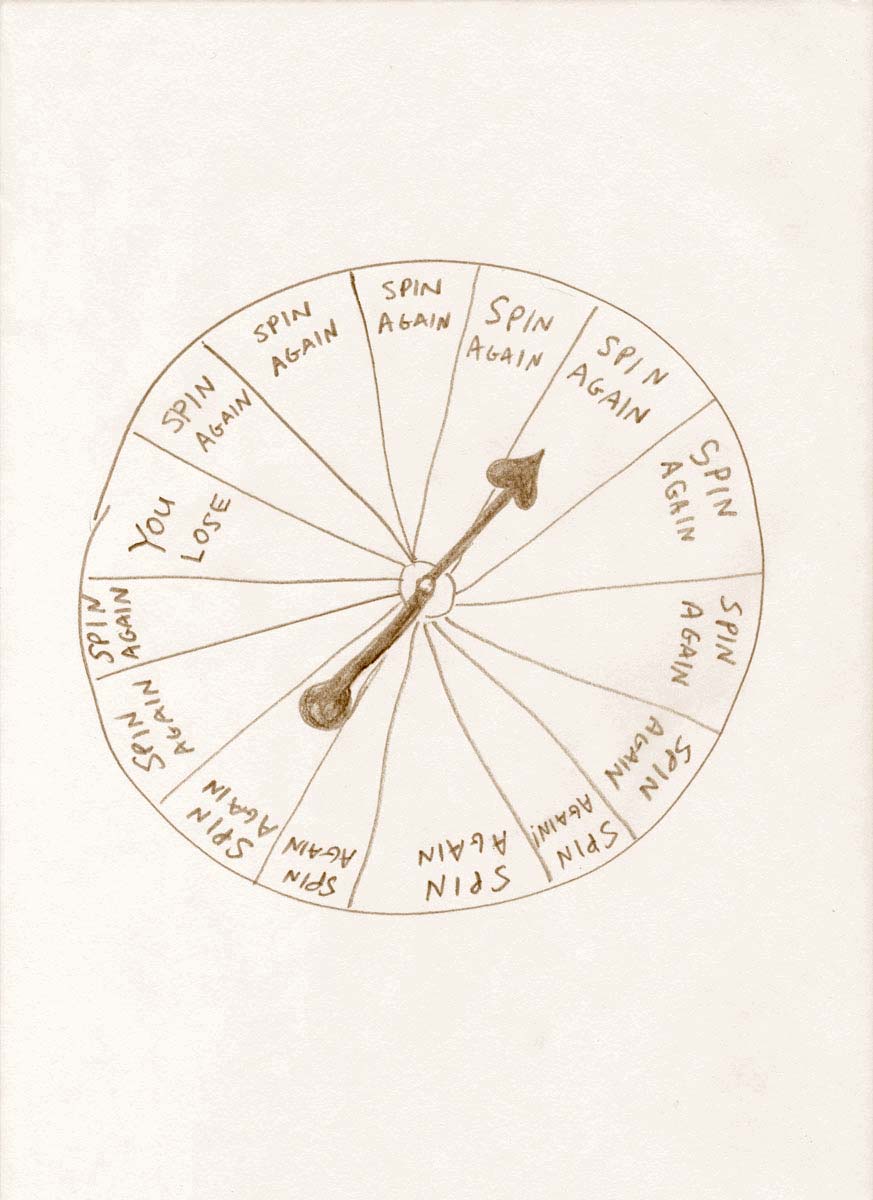 SPIN
AGAIN
SPIN
AGAIN
SPIN
AGAIN
SPIN
AGAIN
SPIN
AGAIN
SPIN
AGAIN
SPIN
AGAIN!
SPIN
AGAIN
SPIN
AGAIN
SPIN
AGAIN
SPIN
AGAIN
SPIN
AGAIN
YOU
LOSE
SPIN
AGAIN
SPIN
AGAIN